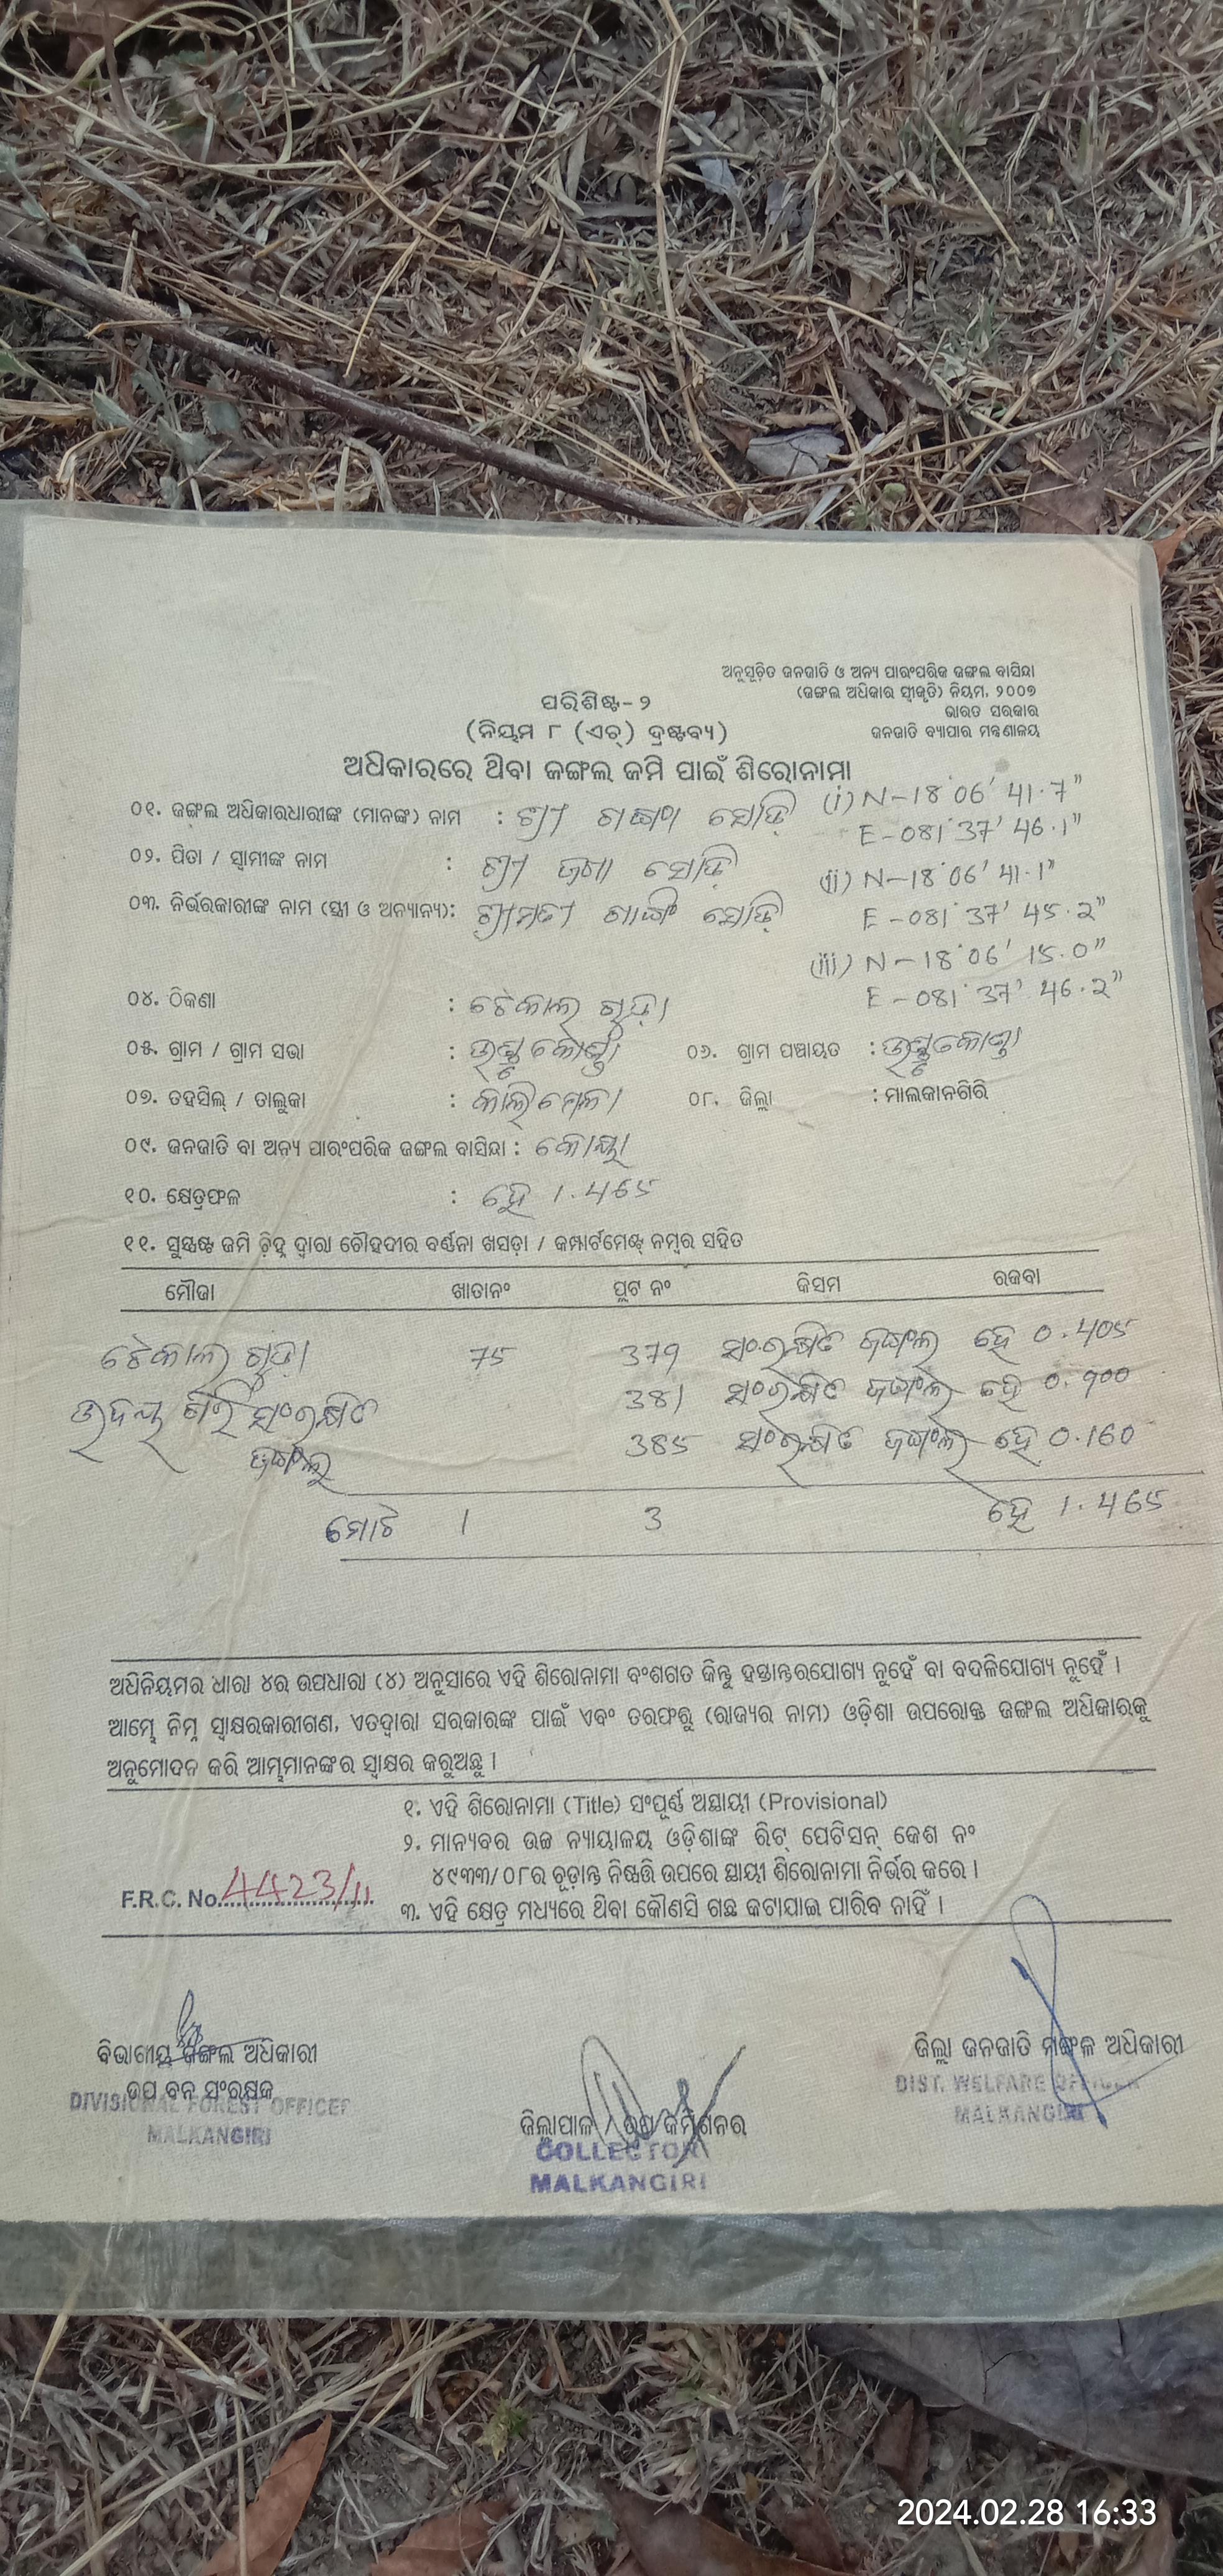 ଅନୁସୂଚିତ ଜନଜାତି ଓ ଅନ୍ୟ ପାରଂପରିକ ଜଙ୍ଗଲ ବାସିନ୍ଦା
(ଜଙ୍ଗଲ ଅଧିକାର ସ୍ଵୀକୃତି) ନିୟମ, ୨୦୦୭
ଭାରତ ସରକାର
ଜନଜାତି ବ୍ୟାପାର ମନ୍ତ୍ରଣାଳୟ
ପରିଶିଷ୍ଟ-୨
(ନିୟମ ୮ (ଏଚ୍) ଦ୍ରଷ୍ଟବ୍ୟ)
ଅଧିକାରରେ ଥିବା ଜଙ୍ଗଲ ଜମି ପାଇଁ ଶିରୋନାମା
୦୧. ଜଙ୍ଗଲ ଅଧିକାରଧାରୀଙ୍କ (ମାନଙ୍କ) ନାମ : ଶ୍ରୀ ଗଙ୍ଗା ସୋଡ଼ି
(i) N-18°06' 41.7"
E-081°37' 46.1"
୦୨. ପିତା / ସ୍ଵାମୀଙ୍କ ନାମ : ଶ୍ରୀ ଜଗା ସୋଡ଼ି
(ii) N-18°06' 41.1"
୦୩. ନିର୍ଭରକାରୀଙ୍କ ନାମ (ସ୍ତ୍ରୀ ଓ ଅନ୍ୟାନ୍ୟ): ଶ୍ରୀମତୀ ସୋଡ଼ି
E-081°37' 45.2"
(iii) N-18°06' 15.0"
E-081°37' 46.2"
୦୪. ଠିକଣା : ଟେକାଲଗୁଡ଼ା
୦୫. ଗ୍ରାମ / ଗ୍ରାମ ସଭା : ଉସ୍କୁକୋଣ୍ଡା ୦୬. ଗ୍ରାମ ପଞ୍ଚାୟତ : ଉସ୍କୁକୋଣ୍ଡା
୦୭. ତହସିଲ୍ / ତାଲୁକା : କାଲିମେଳା ୦୮. ଜିଲ୍ଲା : ମାଲକାନଗିରି
୦୯. ଜନଜାତି ବା ଅନ୍ୟ ପାରଂପରିକ ଜଙ୍ଗଲ ବାସିନ୍ଦା : କୋୟା
୧୦. କ୍ଷେତ୍ରଫଳ : ହେ 1.465
୧୧. ସୁସ୍ପଷ୍ଟ ଜମି ଚିହ୍ନ ଦ୍ଵାରା ଚୌହଦୀର ବର୍ଣ୍ଣନା ଖସଡ଼ା / କମ୍ପାର୍ଟମେଣ୍ଟ୍ ନମ୍ବର ସହିତ
ମୌଜା ଖାତାନଂ ପ୍ଲଟ ନଂ କିସମ ରକବା
ଟେକାଲଗୁଡ଼ା 75 379 ସଂରକ୍ଷିତ ଜଙ୍ଗଲ ହେ 0.405
ଉଦୟଗିରି ସଂରକ୍ଷିତ 381 ସଂରକ୍ଷିତ ଜଙ୍ଗଲ ହେ 0.900
ଜଙ୍ଗଲ 385 ସଂରକ୍ଷିତ ଜଙ୍ଗଲ ହେ 0.160
ମୋଟ 1 3 ହେ 1.465
ଅଧିନିୟମର ଧାରା ୪ର ଉପଧାରା (୪) ଅନୁସାରେ ଏହି ଶିରୋନାମା ବଂଶଗତ କିନ୍ତୁ ହସ୍ତାନ୍ତରଯୋଗ୍ୟ ନୁହେଁ ବା ବଦଳିଯୋଗ୍ୟ ନୁହେଁ ।
ଆମ୍ଭେ ନିମ୍ନ ସ୍ଵାକ୍ଷରକାରୀଗଣ, ଏତଦ୍ଵାରା ସରକାରଙ୍କ ପାଇଁ ଏବଂ ତରଫରୁ (ରାଜ୍ୟର ନାମ) ଓଡ଼ିଶା ଉପରୋକ୍ତ ଜଙ୍ଗଲ ଅଧିକାରକୁ
ଅନୁମୋଦନ କରି ଆମ୍ଭମାନଙ୍କର ସ୍ଵାକ୍ଷର କରୁଅଛୁ ।
୧. ଏହି ଶିରୋନାମା (Title) ସଂପୂର୍ଣ୍ଣ ଅସ୍ଥାୟୀ (Provisional)
୨. ମାନ୍ୟବର ଉଚ୍ଚ ନ୍ୟାୟାଳୟ ଓଡ଼ିଶାଙ୍କ ରିଟ୍ ପେଟିସନ୍ କେଶ ନଂ
୪୯୩୩/୦୮ର ଚୂଡ଼ାନ୍ତ ନିଷ୍ପତ୍ତି ଉପରେ ସ୍ଥାୟୀ ଶିରୋନାମା ନିର୍ଭର କରେ ।
F.R.C. No. 4423/11
୩. ଏହି କ୍ଷେତ୍ର ମଧ୍ୟରେ ଥିବା କୌଣସି ଗଛ କଟାଯାଇ ପାରିବ ନାହିଁ ।
ବିଭାଗୀୟ ଜଙ୍ଗଲ ଅଧିକାରୀ
ଉପ ବନ ସଂରକ୍ଷକ
DIVISIONAL FOREST OFFICER
MALKANGIRI
ଜିଲ୍ଲାପାଳ / ଉପ କମିଶନର
COLLECTOR
MALKANGIRI
ଜିଲ୍ଲା ଜନଜାତି ମଙ୍ଗଳ ଅଧିକାରୀ
DIST. WELFARE OFFICER
MALKANGIRI
2024.02.28 16:33